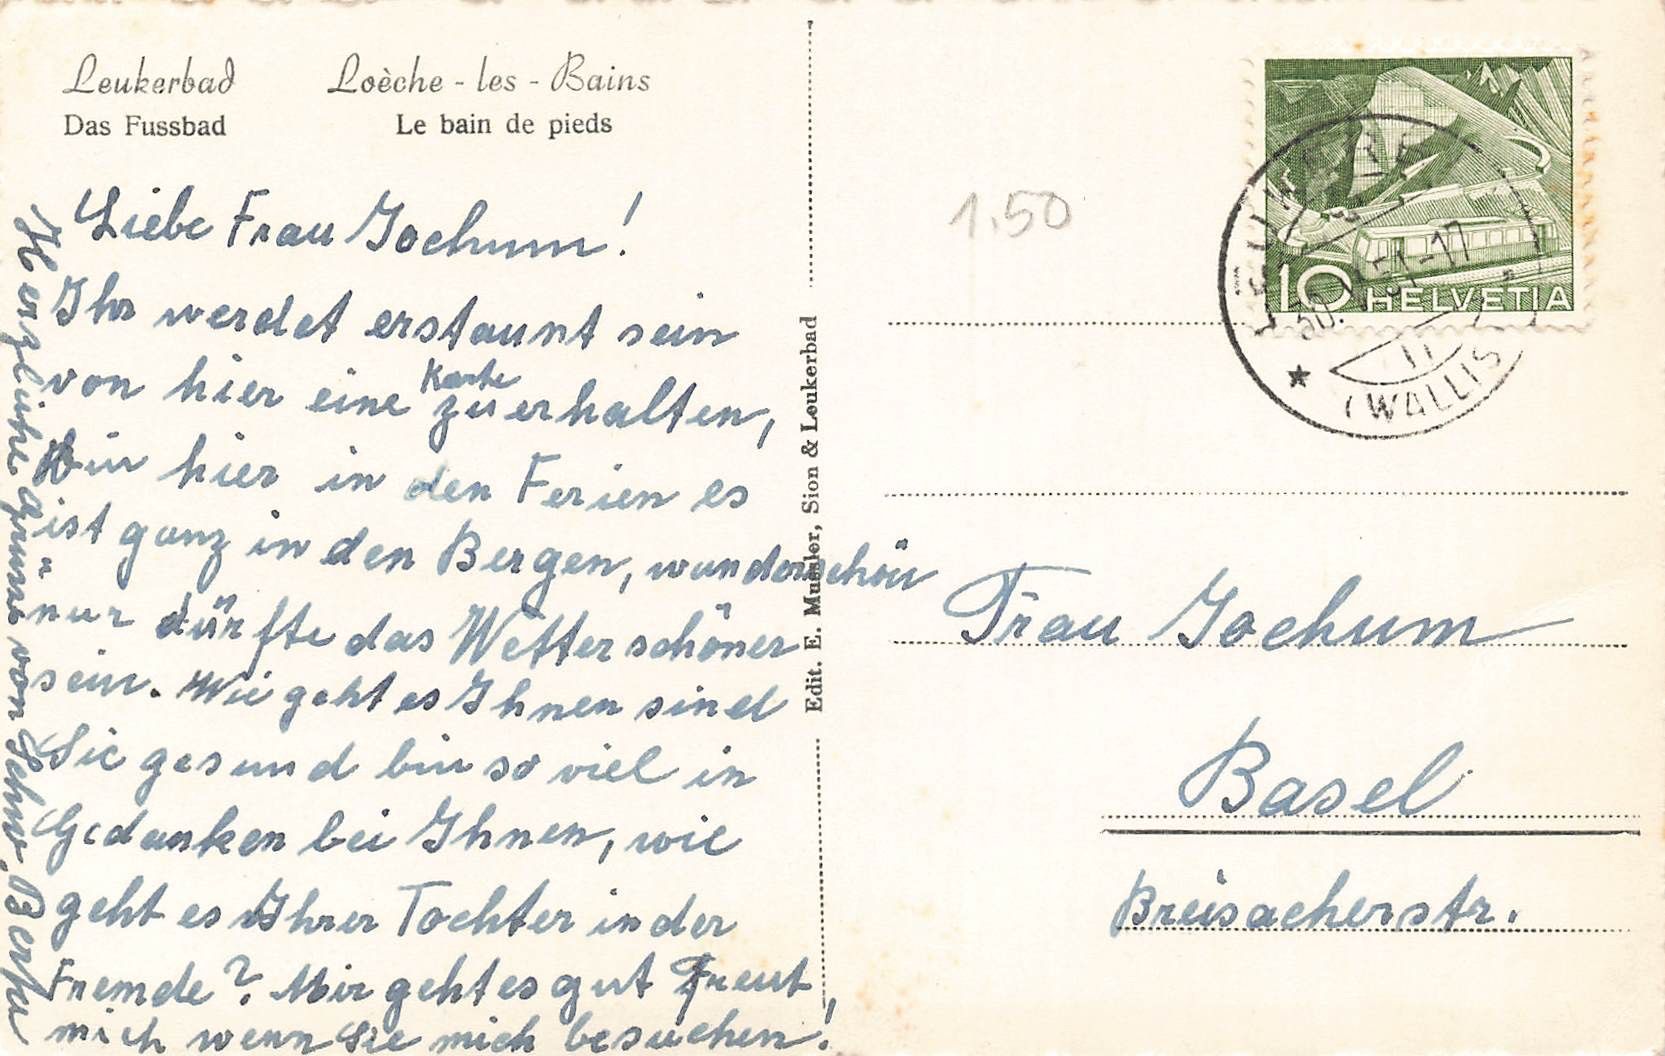 Leukerbad Loèche-les-Bains
Das Fussbad Le bain de pieds
Liebe Frau Jochum!
Ihr werdet erstaunt sein
von hier eine Karte zu erhalten,
bin hier in den Ferien es
ist ganz in den Bergen, wunderschön
nur dürfte das Wetter schöner
sein. Wie geht es Ihnen sind
Sie gesund bin so viel in
Gedanken bei Ihnen, wie
geht es Ihrer Tochter in der
Fremde? Mir geht es gut Freut
mich wenn Sie mich besuchen!
Herzliche Grüsse von Schw.
Edit. E. Mussler, Sion & Leukerbad
1.50
10 HELVETIA
51-17
(WALLIS
Frau Jochum
Basel
Breisacherstr.